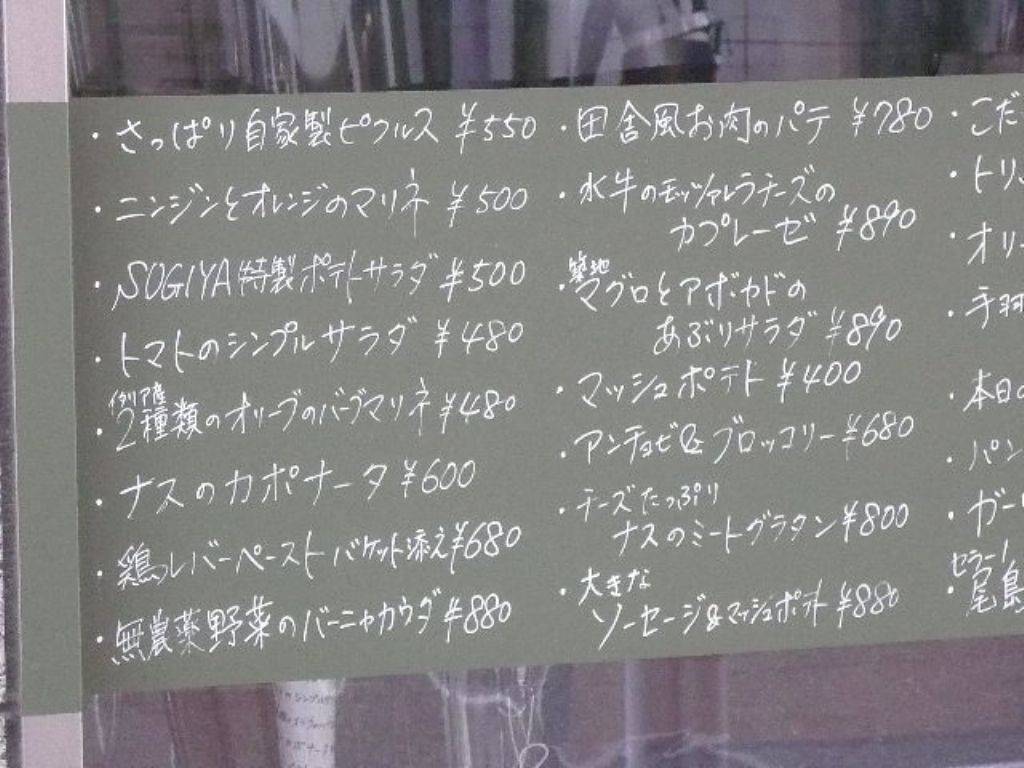 ・さっぱり自家製ピクルス ¥550
・ニンジンとオレンジのマリネ ¥500
・SOGIYA特製ポテトサラダ ¥500
・トマトのシンプルサラダ ¥480
イタリア産
・2種類のオリーブのハーブマリネ ¥480
・ナスのカポナータ ¥600
・鶏レバーペースト バケット添え ¥680
・無農薬野菜のバーニャカウダ ¥880
・田舎風お肉のパテ ¥780
・水牛のモッツァレラチーズの
カプレーゼ ¥890
築地
・マグロとアボカドの
あぶりサラダ ¥890
・マッシュポテト ¥400
・アンチョビ&ブロッコリー ¥680
・チーズたっぷり
ナスのミートグラタン ¥800
・大きな
ソーセージ&マッシュポテト ¥880
・こだ
・トリ
・オリ
・手羽
・本日の
・パン
・ガー
セラー
・尾島